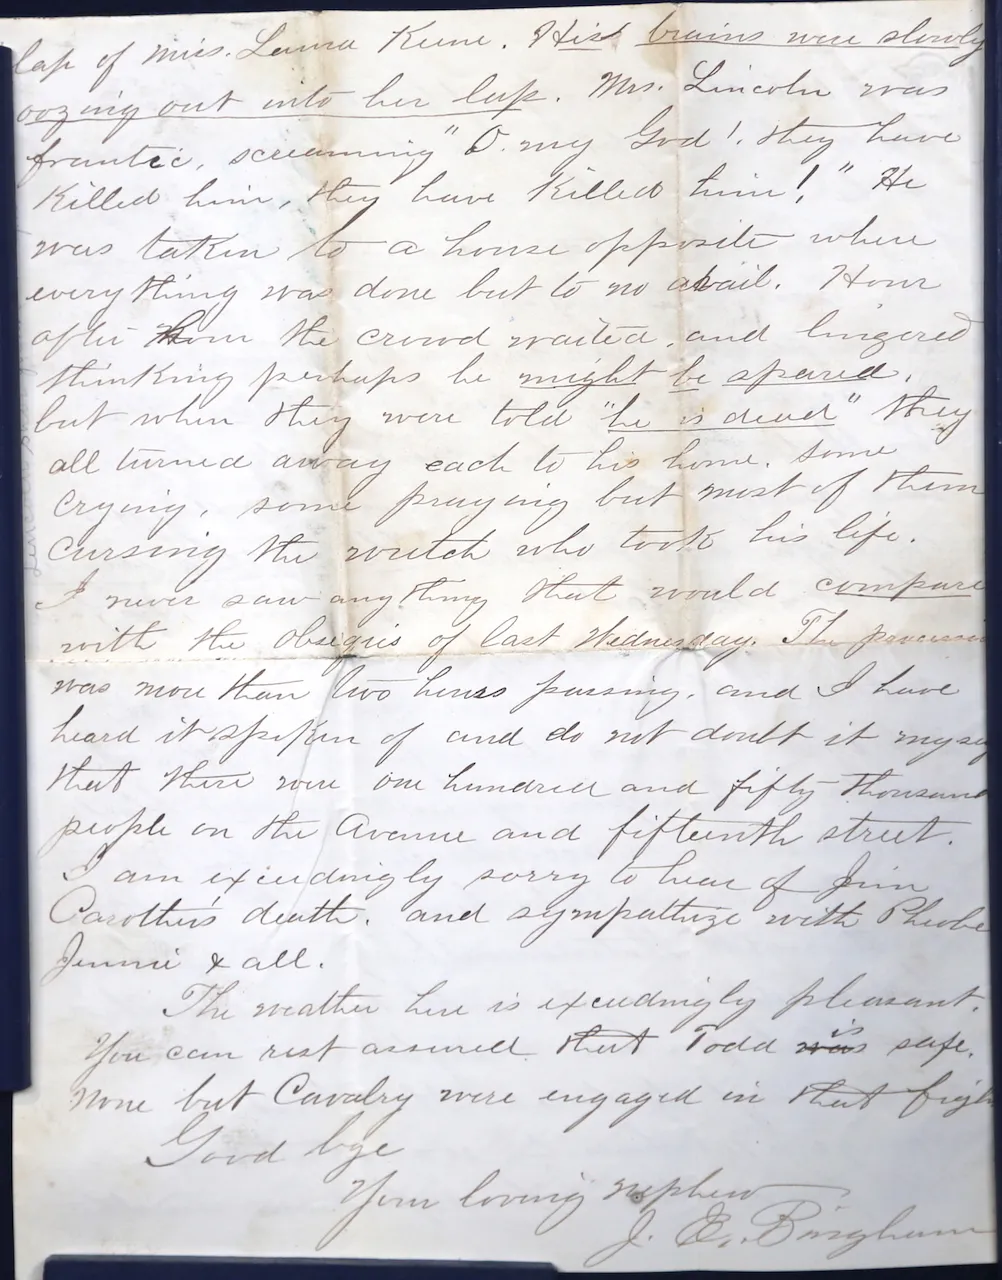 lap of miss. Laura Keene. His brains were slowly
oozing out into her lap. Mrs. Lincoln was
frantic, screaming "O. my God! they have
Killed him, they have Killed him!" He
was taken to a house opposite where
everything was done but to no avail. Hour
after hour the crowd waited, and lingered
thinking perhaps he might be spared,
but when they were told "he is dead" they
all turned away each to his home. Some
crying, some praying but most of them
cursing the wretch who took his life.
I never saw anything that would compare
with the obsequis of last Wednesday. The
was more than two hours passing, and I have
heard it spoken of and do not doubt it
that there were one hundred and fifty thousand
people on the Avenue and fifteenth street.
I am exceedingly sorry to hear of Jim
Carother's death. and sympathize with Pheobe
Jennie & all.
The weather here is exceedingly pleasant.
is
You can rest assured that Todd was safe.
none but Cavalry were engaged in that
Good bye
Your loving nephew
J. E. Bingham